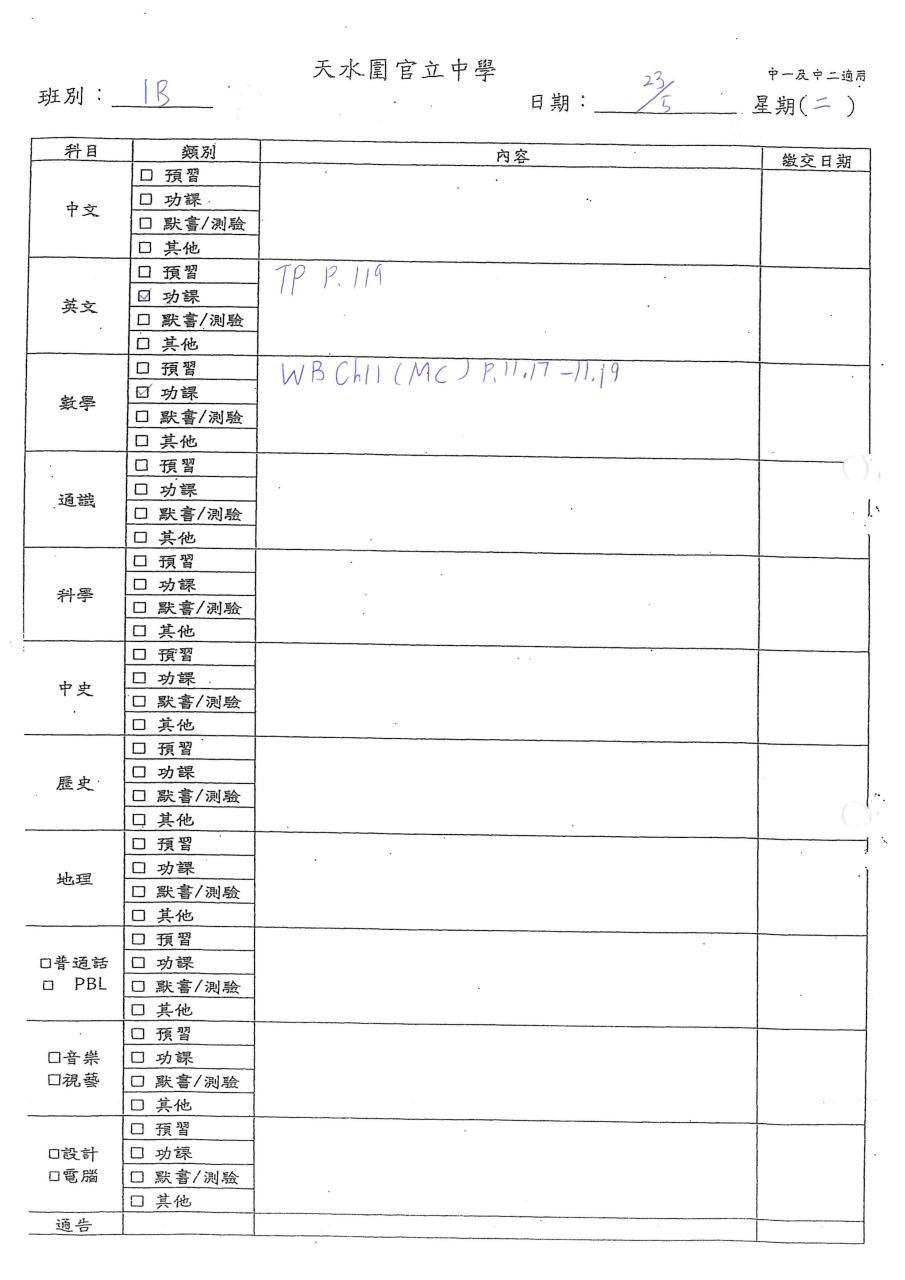 天水圍官立中學
中一及中二適用
班別：1B 日期：23/5 星期(二)
科目 類別 內容 繳交日期
中文
□ 預習
□ 功課
□ 默書/測驗
□ 其他
英文
□ 預習 TP P.119
☑ 功課
□ 默書/測驗
□ 其他
數學
□ 預習 WB Ch11 (MC) P.11.17-11.19
☑ 功課
□ 默書/測驗
□ 其他
通識
□ 預習
□ 功課
□ 默書/測驗
□ 其他
科學
□ 預習
□ 功課
□ 默書/測驗
□ 其他
中史
□ 預習
□ 功課
□ 默書/測驗
□ 其他
歷史
□ 預習
□ 功課
□ 默書/測驗
□ 其他
地理
□ 預習
□ 功課
□ 默書/測驗
□ 其他
□普通話
□ PBL
□ 預習
□ 功課
□ 默書/測驗
□ 其他
□音樂
□視藝
□ 預習
□ 功課
□ 默書/測驗
□ 其他
□設計
□電腦
□ 預習
□ 功課
□ 默書/測驗
□ 其他
通告